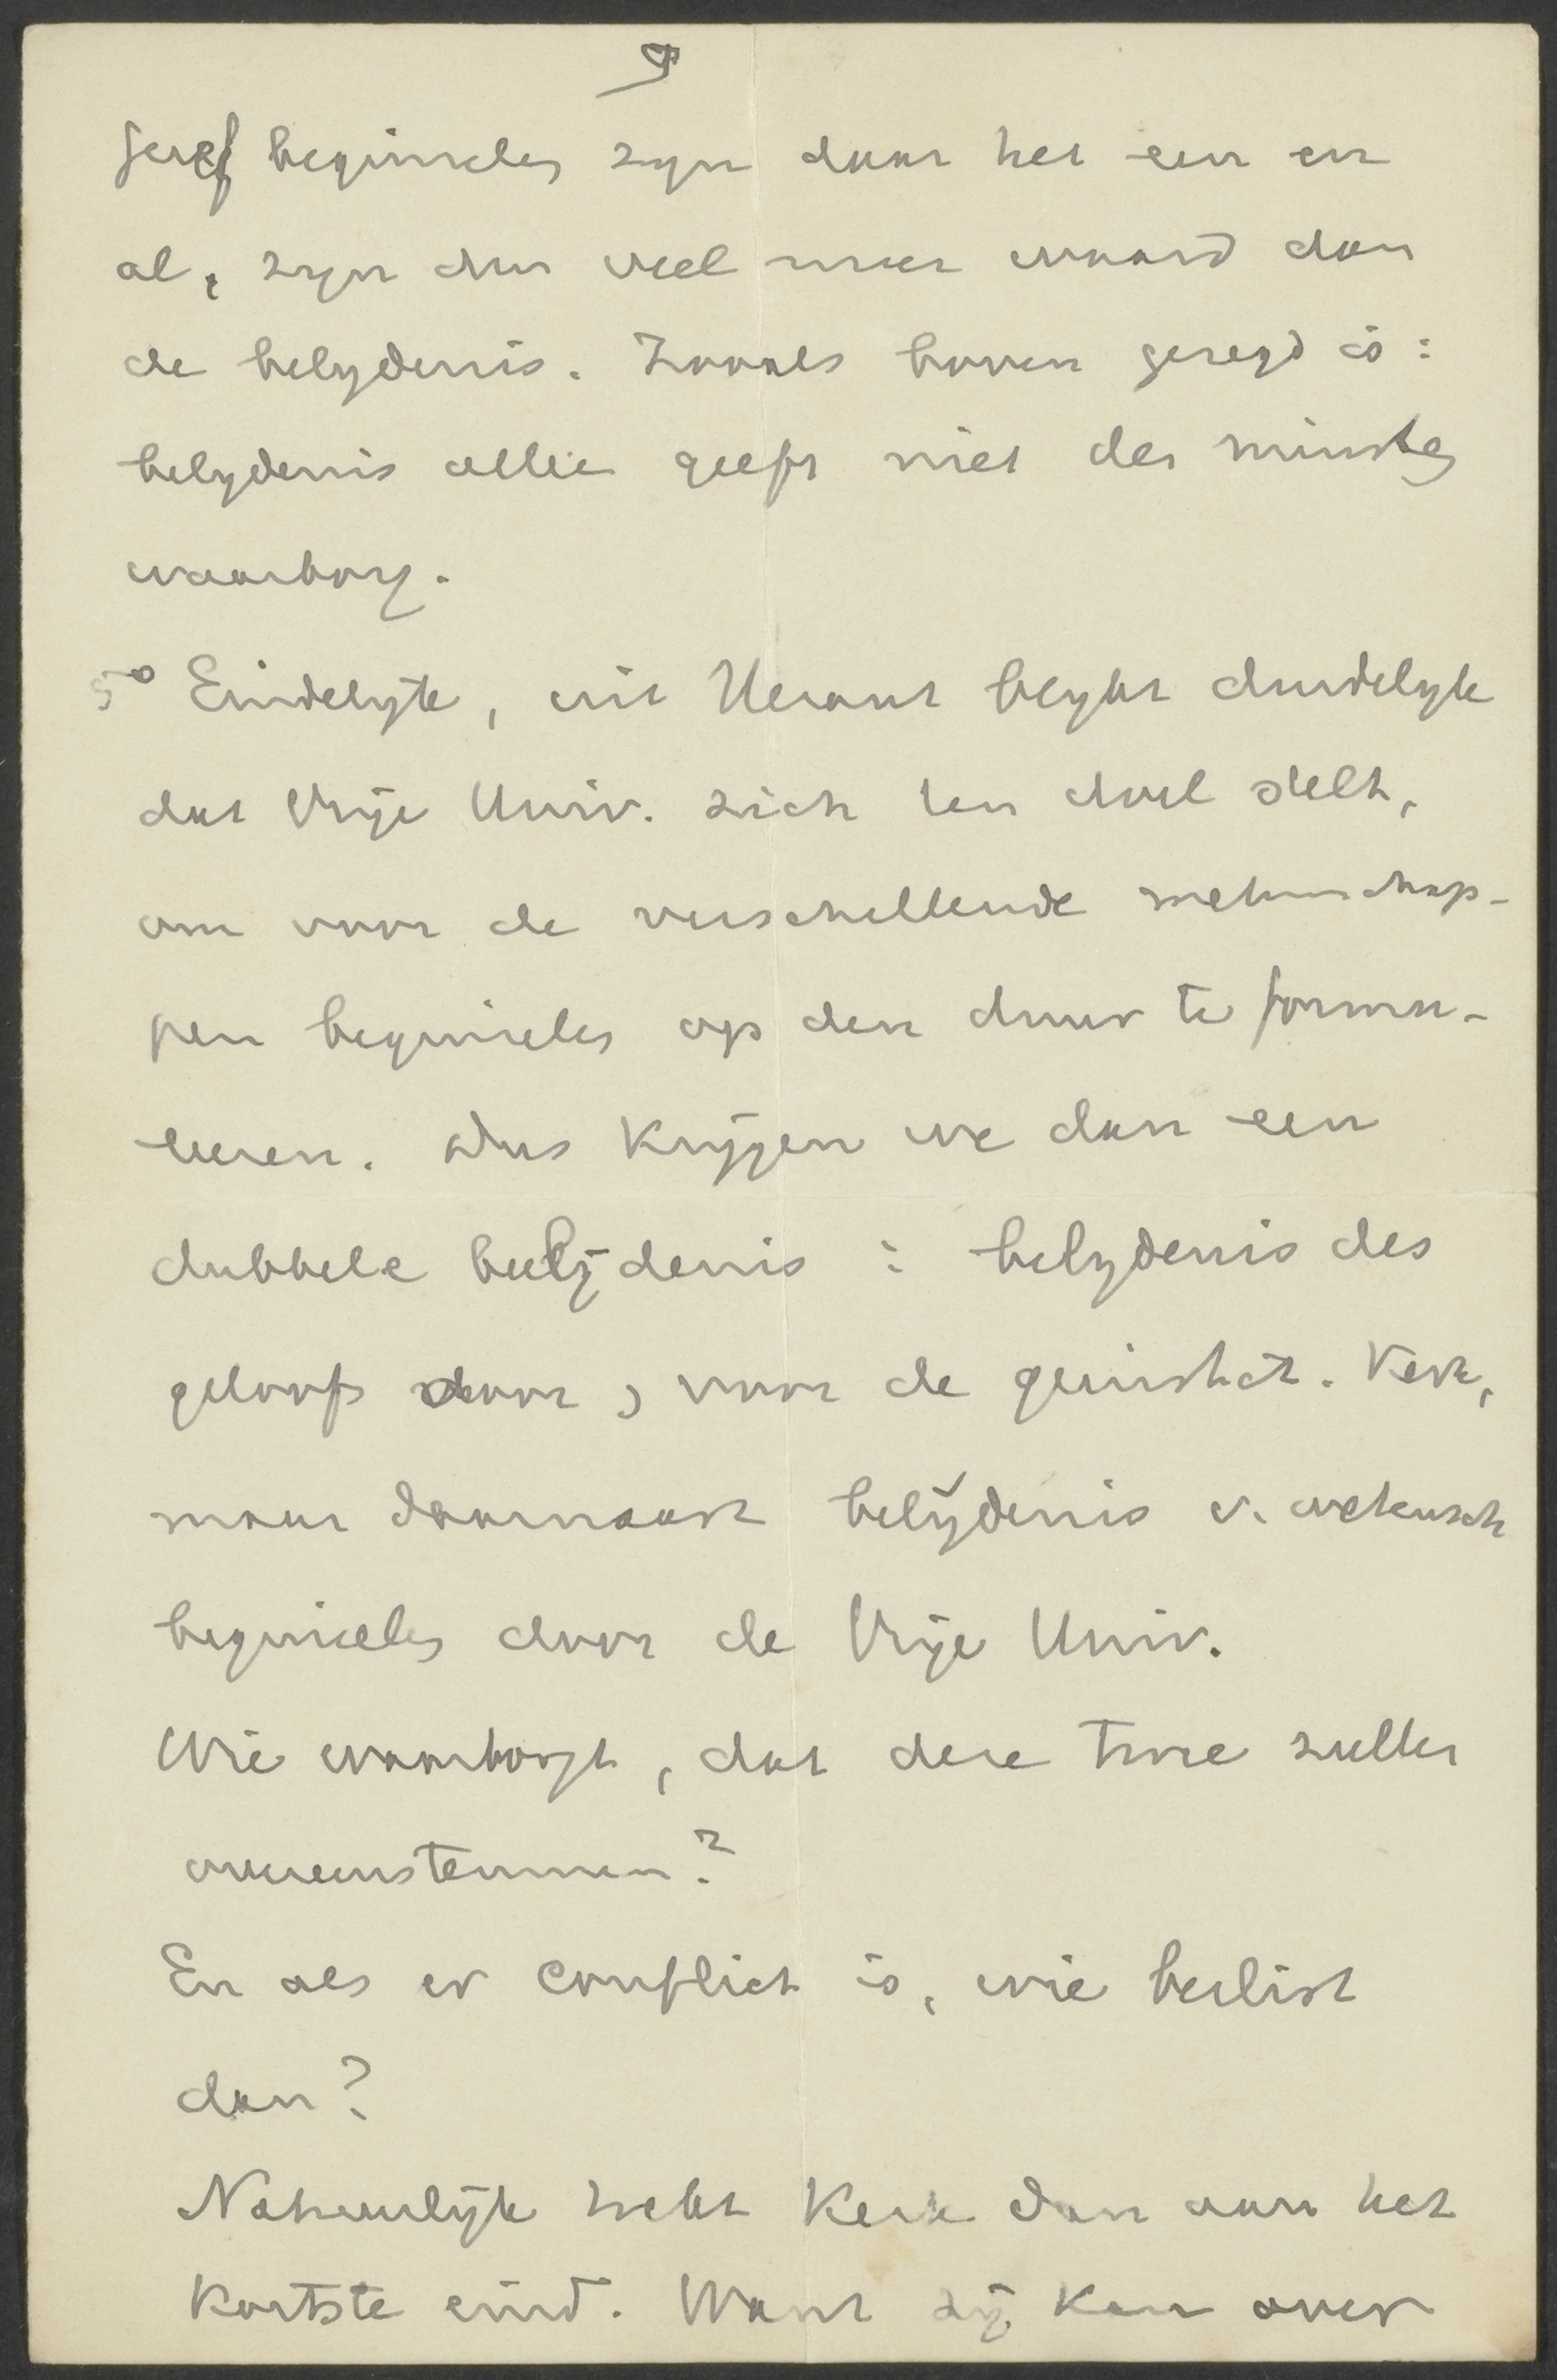 9
Geref beginselen zyn daar het een en
al, zyn dus veel meer waard dan
de belydenis. Zooals boven gezegd is:
belydenis alleen geeft niet den minsten
waarborg.
5o Eindelyk, uit Heraut blykt duidelyk
dat Vrije Univ. zich ten doel stelt,
om voor de verschillende wetenschap-
pen beginselen op den duur te formu-
leeren. Dus krijgen we dan een
dubbele belijdenis : belydenis des
geloofs door, voor de geinstit. Kerk,
maar daarnaast belijdenis v. wetensch
beginselen door de Vrije Univ.
Wie waarborgt, dat deze twee zullen
overeenstemmen?
En als er conflict is, wie beslist
dan?
Natuurlijk trekt Kerk dan aan het
kortste eind. Want zij kan over